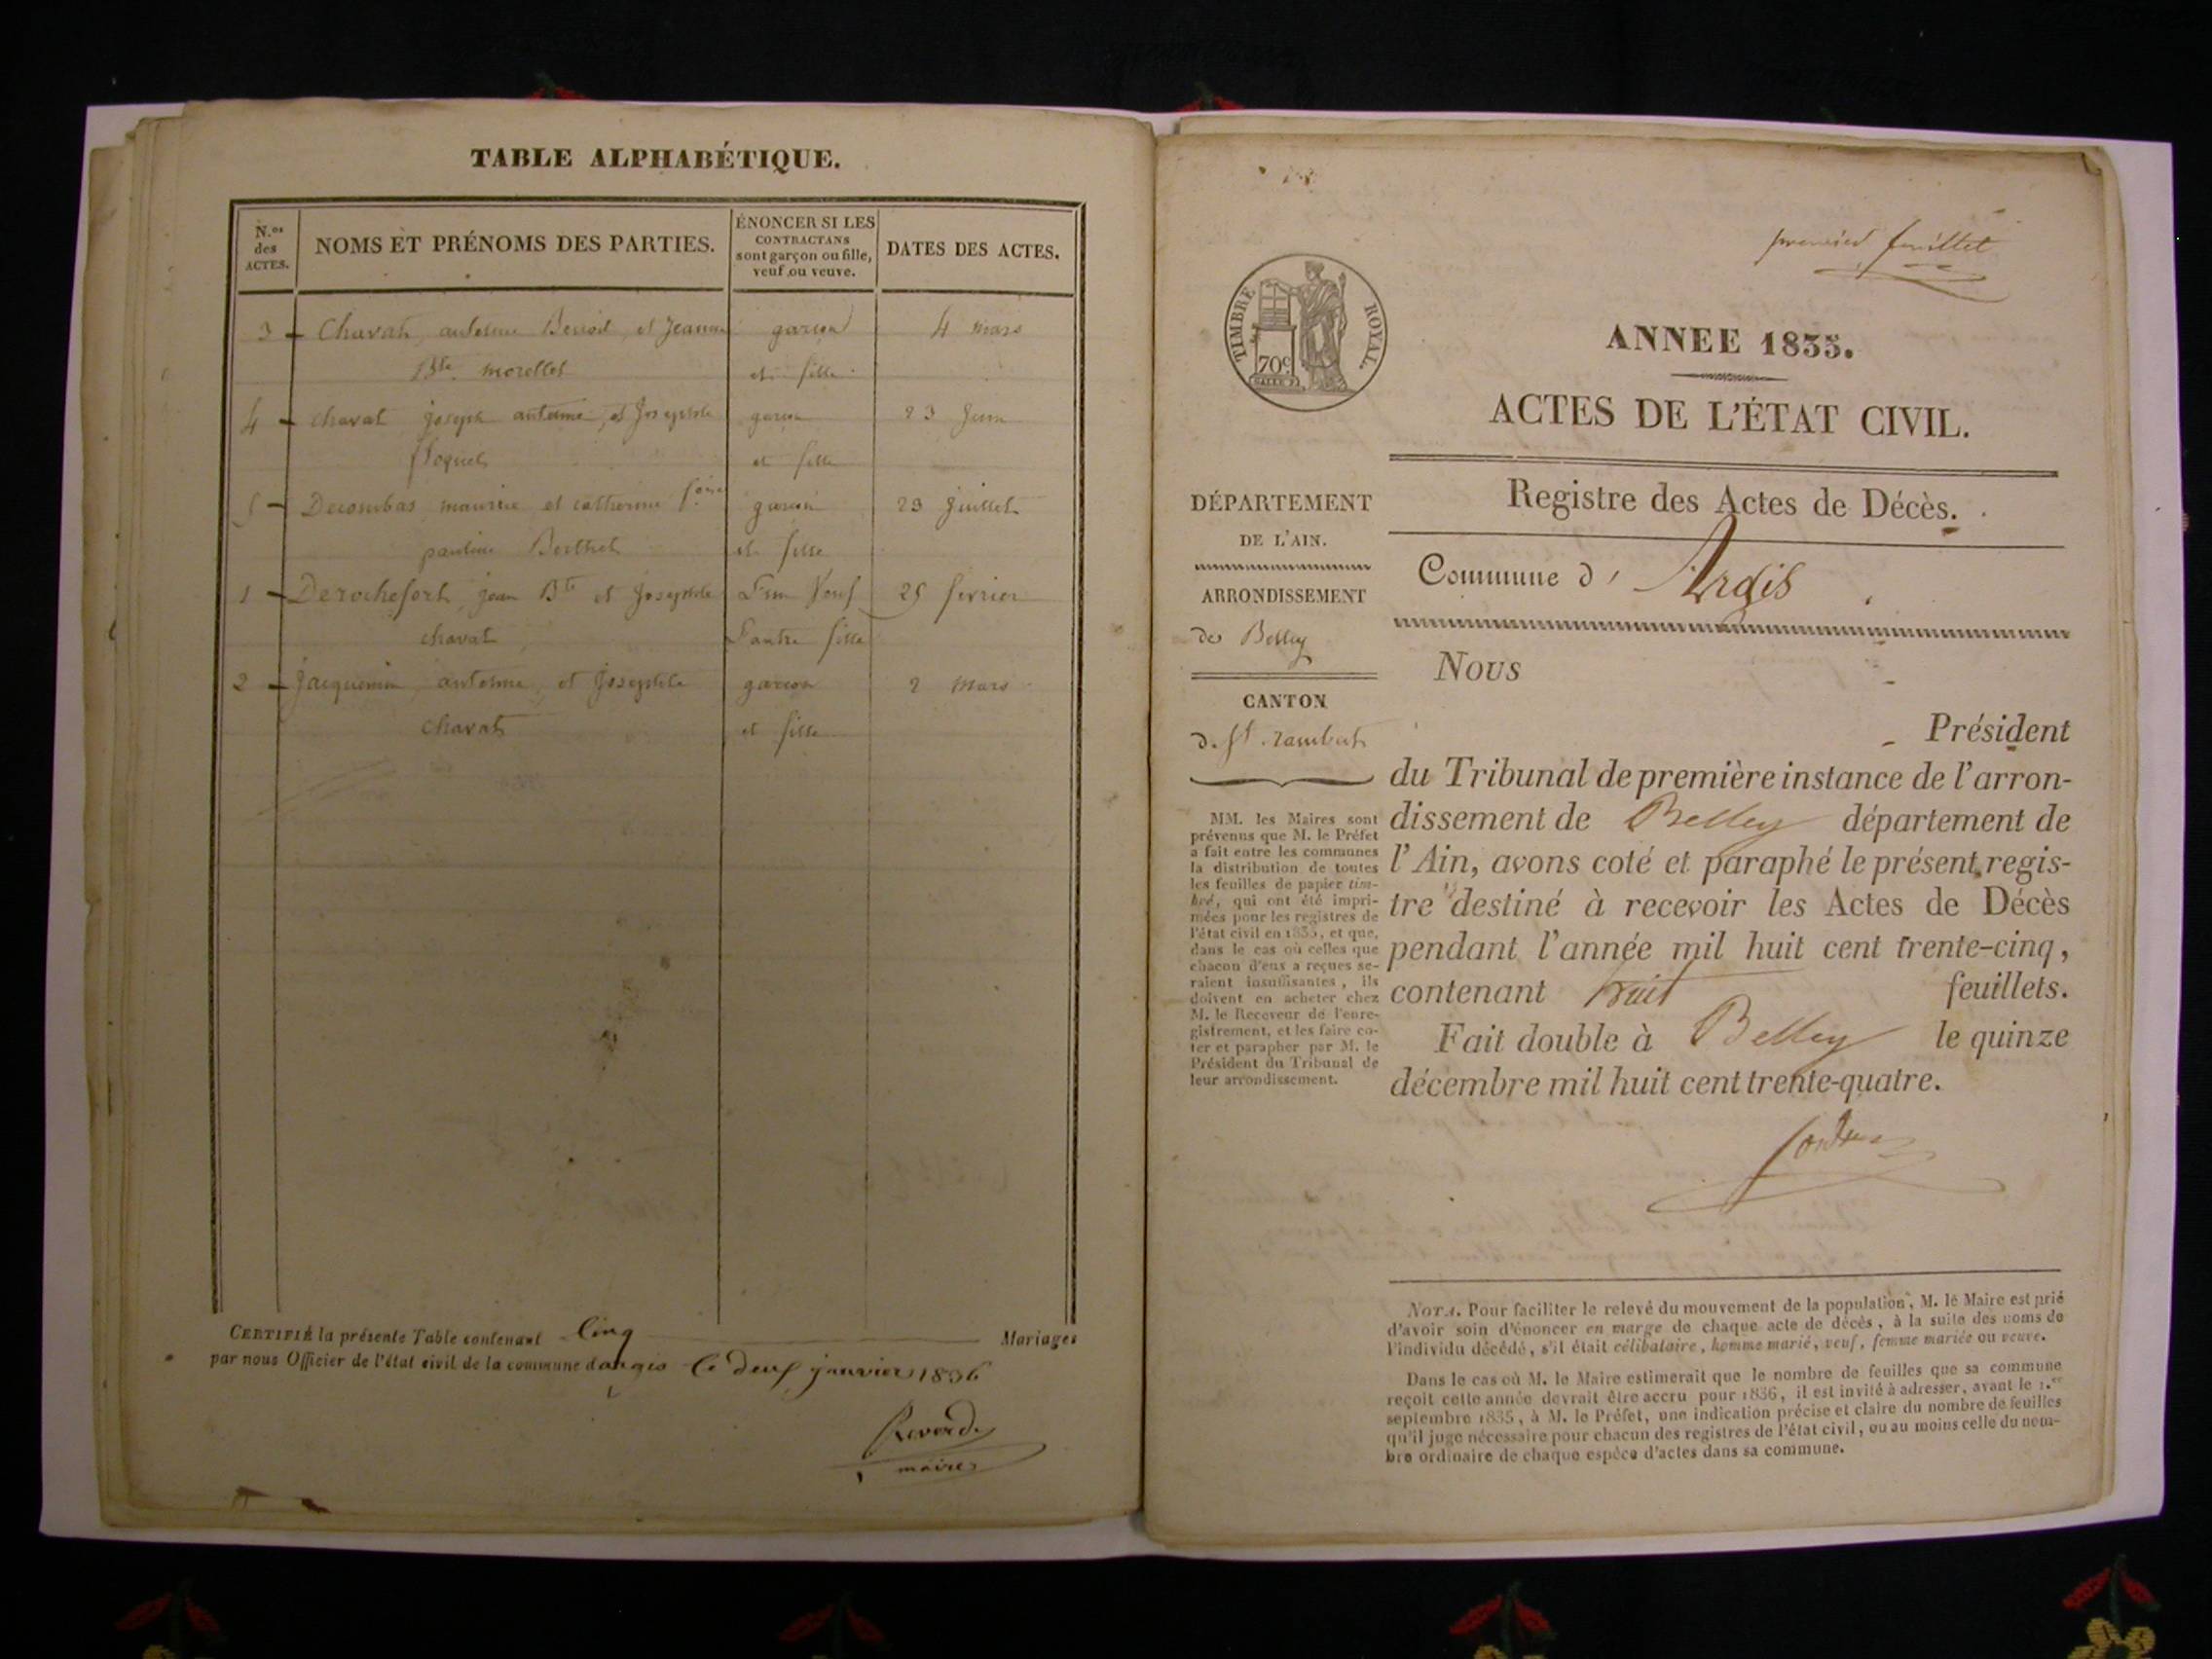 TABLE ALPHABÉTIQUE.
N.os des ACTES.
NOMS ET PRÉNOMS DES PARTIES.
ÉNONCER SI LES CONTRACTANS sont garçon ou fille, veuf ou veuve.
DATES DES ACTES.
3 - Chavat, antoine Benoit, et Jeanne garçon 4 mars
Bte. morellet et fille
4 - chavat joseph antoine, et Josephte garçon 23 Juin
floquet et fille
5 - Decombas maurice et catherine foise garçon 23 Juillet
pauline Berthet et fille
1 - Derochefort, jean Bte et Josephte L'un Veuf 25 fevrier
chavat L'autre fille
2 - Jacquemin, antoine, et Josephte garçon 2 mars
chavat et fille
CERTIFIÉ la présente Table contenant Cinq Mariages
par nous Officier de l'état civil de la commune d'argis le deux janvier 1836
Reverdy
maire
premier feuillet
TIMBRE ROYAL.
70c
ANNEE 1835.
ACTES DE L'ÉTAT CIVIL.
Registre des Actes de Décès.
Commune d' Argis
DÉPARTEMENT
DE L'AIN.
ARRONDISSEMENT
de Belley
CANTON
de St. rambert
MM. les Maires sont
prévenus que M. le Préfet
a fait entre les communes
la distribution de toutes
les feuilles de papier tim-
bré, qui ont été impri-
mées pour les registres de
l'état civil en 1835, et que,
dans le cas où celles que
chacun d'eux a reçues se-
raient insuffisantes, ils
doivent en acheter chez
M. le Receveur de l'enre-
gistrement, et les faire co-
ter et parapher par M. le
Président du Tribunal de
leur arrondissement.
Nous
Président
du Tribunal de première instance de l'arron-
dissement de Belley département de
l'Ain, avons coté et paraphé le présent regis-
tre destiné à recevoir les Actes de Décès
pendant l'année mil huit cent trente-cinq,
contenant huit feuillets.
Fait double à Belley le quinze
décembre mil huit cent trente-quatre.
NOTA. Pour faciliter le relevé du mouvement de la population, M. le Maire est prié
d'avoir soin d'énoncer en marge de chaque acte de décès, à la suite des noms de
l'individu décédé, s'il était célibataire, homme marié, veuf, femme mariée ou veuve.
Dans le cas où M. le Maire estimerait que le nombre de feuilles que sa commune
reçoit cette année devrait être accru pour 1836, il est invité à adresser, avant le 1.er
septembre 1835, à M. le Préfet, une indication précise et claire du nombre de feuilles
qu'il juge nécessaire pour chacun des registres de l'état civil, ou au moins celle du nom-
bre ordinaire de chaque espèce d'actes dans sa commune.